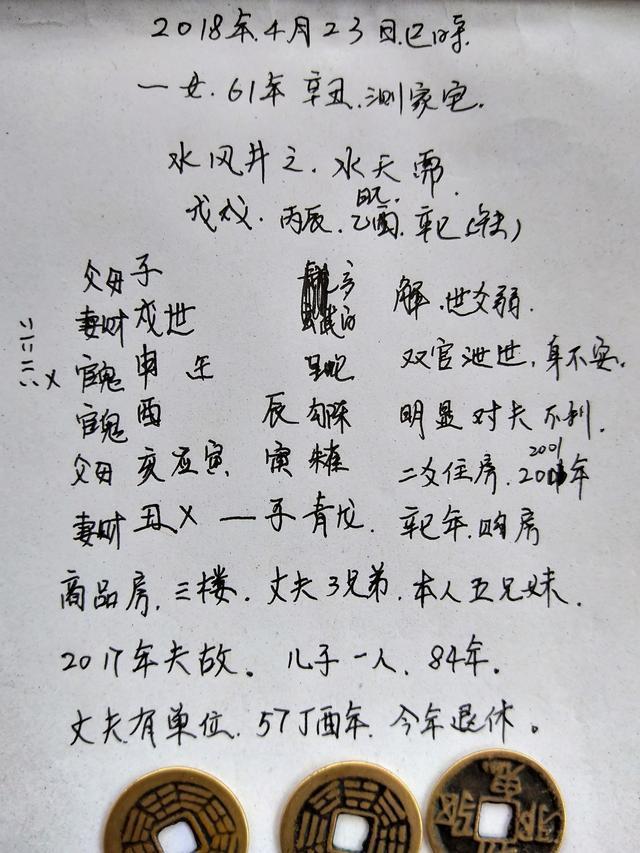 2018年4月23日.巳时.
一女.61年辛丑.测家宅.
水风井之.水天需.
戊戌.丙辰.乙酉.辛巳
父母子
妻财戌世 解.世爻弱.
官鬼申 午 双官泄世.身不安.
官鬼酉 辰勾陈 明显对夫不利.
父母亥应寅 寅朱雀 二爻住房.2001年
妻财丑X 一子青龙. 辛巳年.购房
商品房.三楼.丈夫3兄弟.本人五兄妹.
2017年夫故。儿子一人.84年.
丈夫有单位.57丁酉年.今年退休。